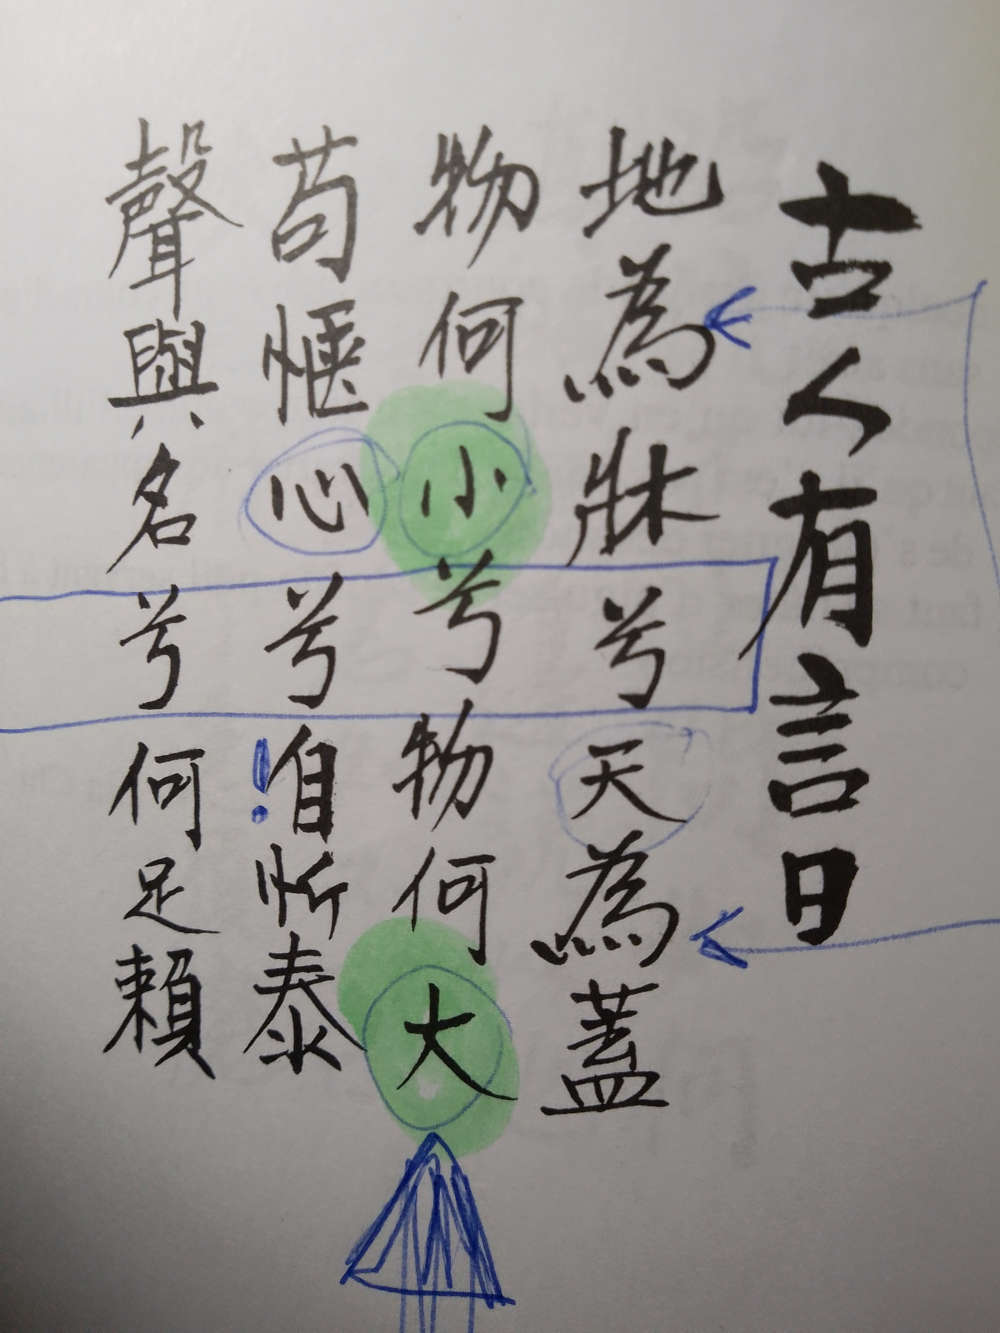 古人有言曰
地為牀兮天為蓋
物何小兮物何大
苟愜心兮自忻泰
!
聲與名兮何足賴